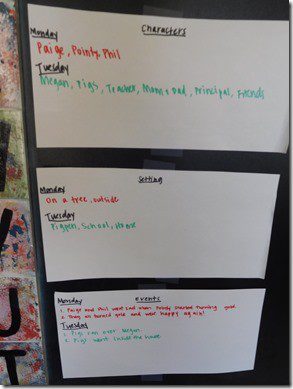 Characters
Monday
Paige, Pointy, Phil
Tuesday
Megan, Pigs, Teacher, Mom + Dad, Principal, Friends
Setting
Monday
On a tree, outside
Tuesday
Pigpen, School, House
Events
Monday
1. Paige and Phil were sad when Pointy started turning gold.
2. They all turned gold and were happy again!
Tuesday
1. Pigs ran over Megan.
2. Pigs went inside the house